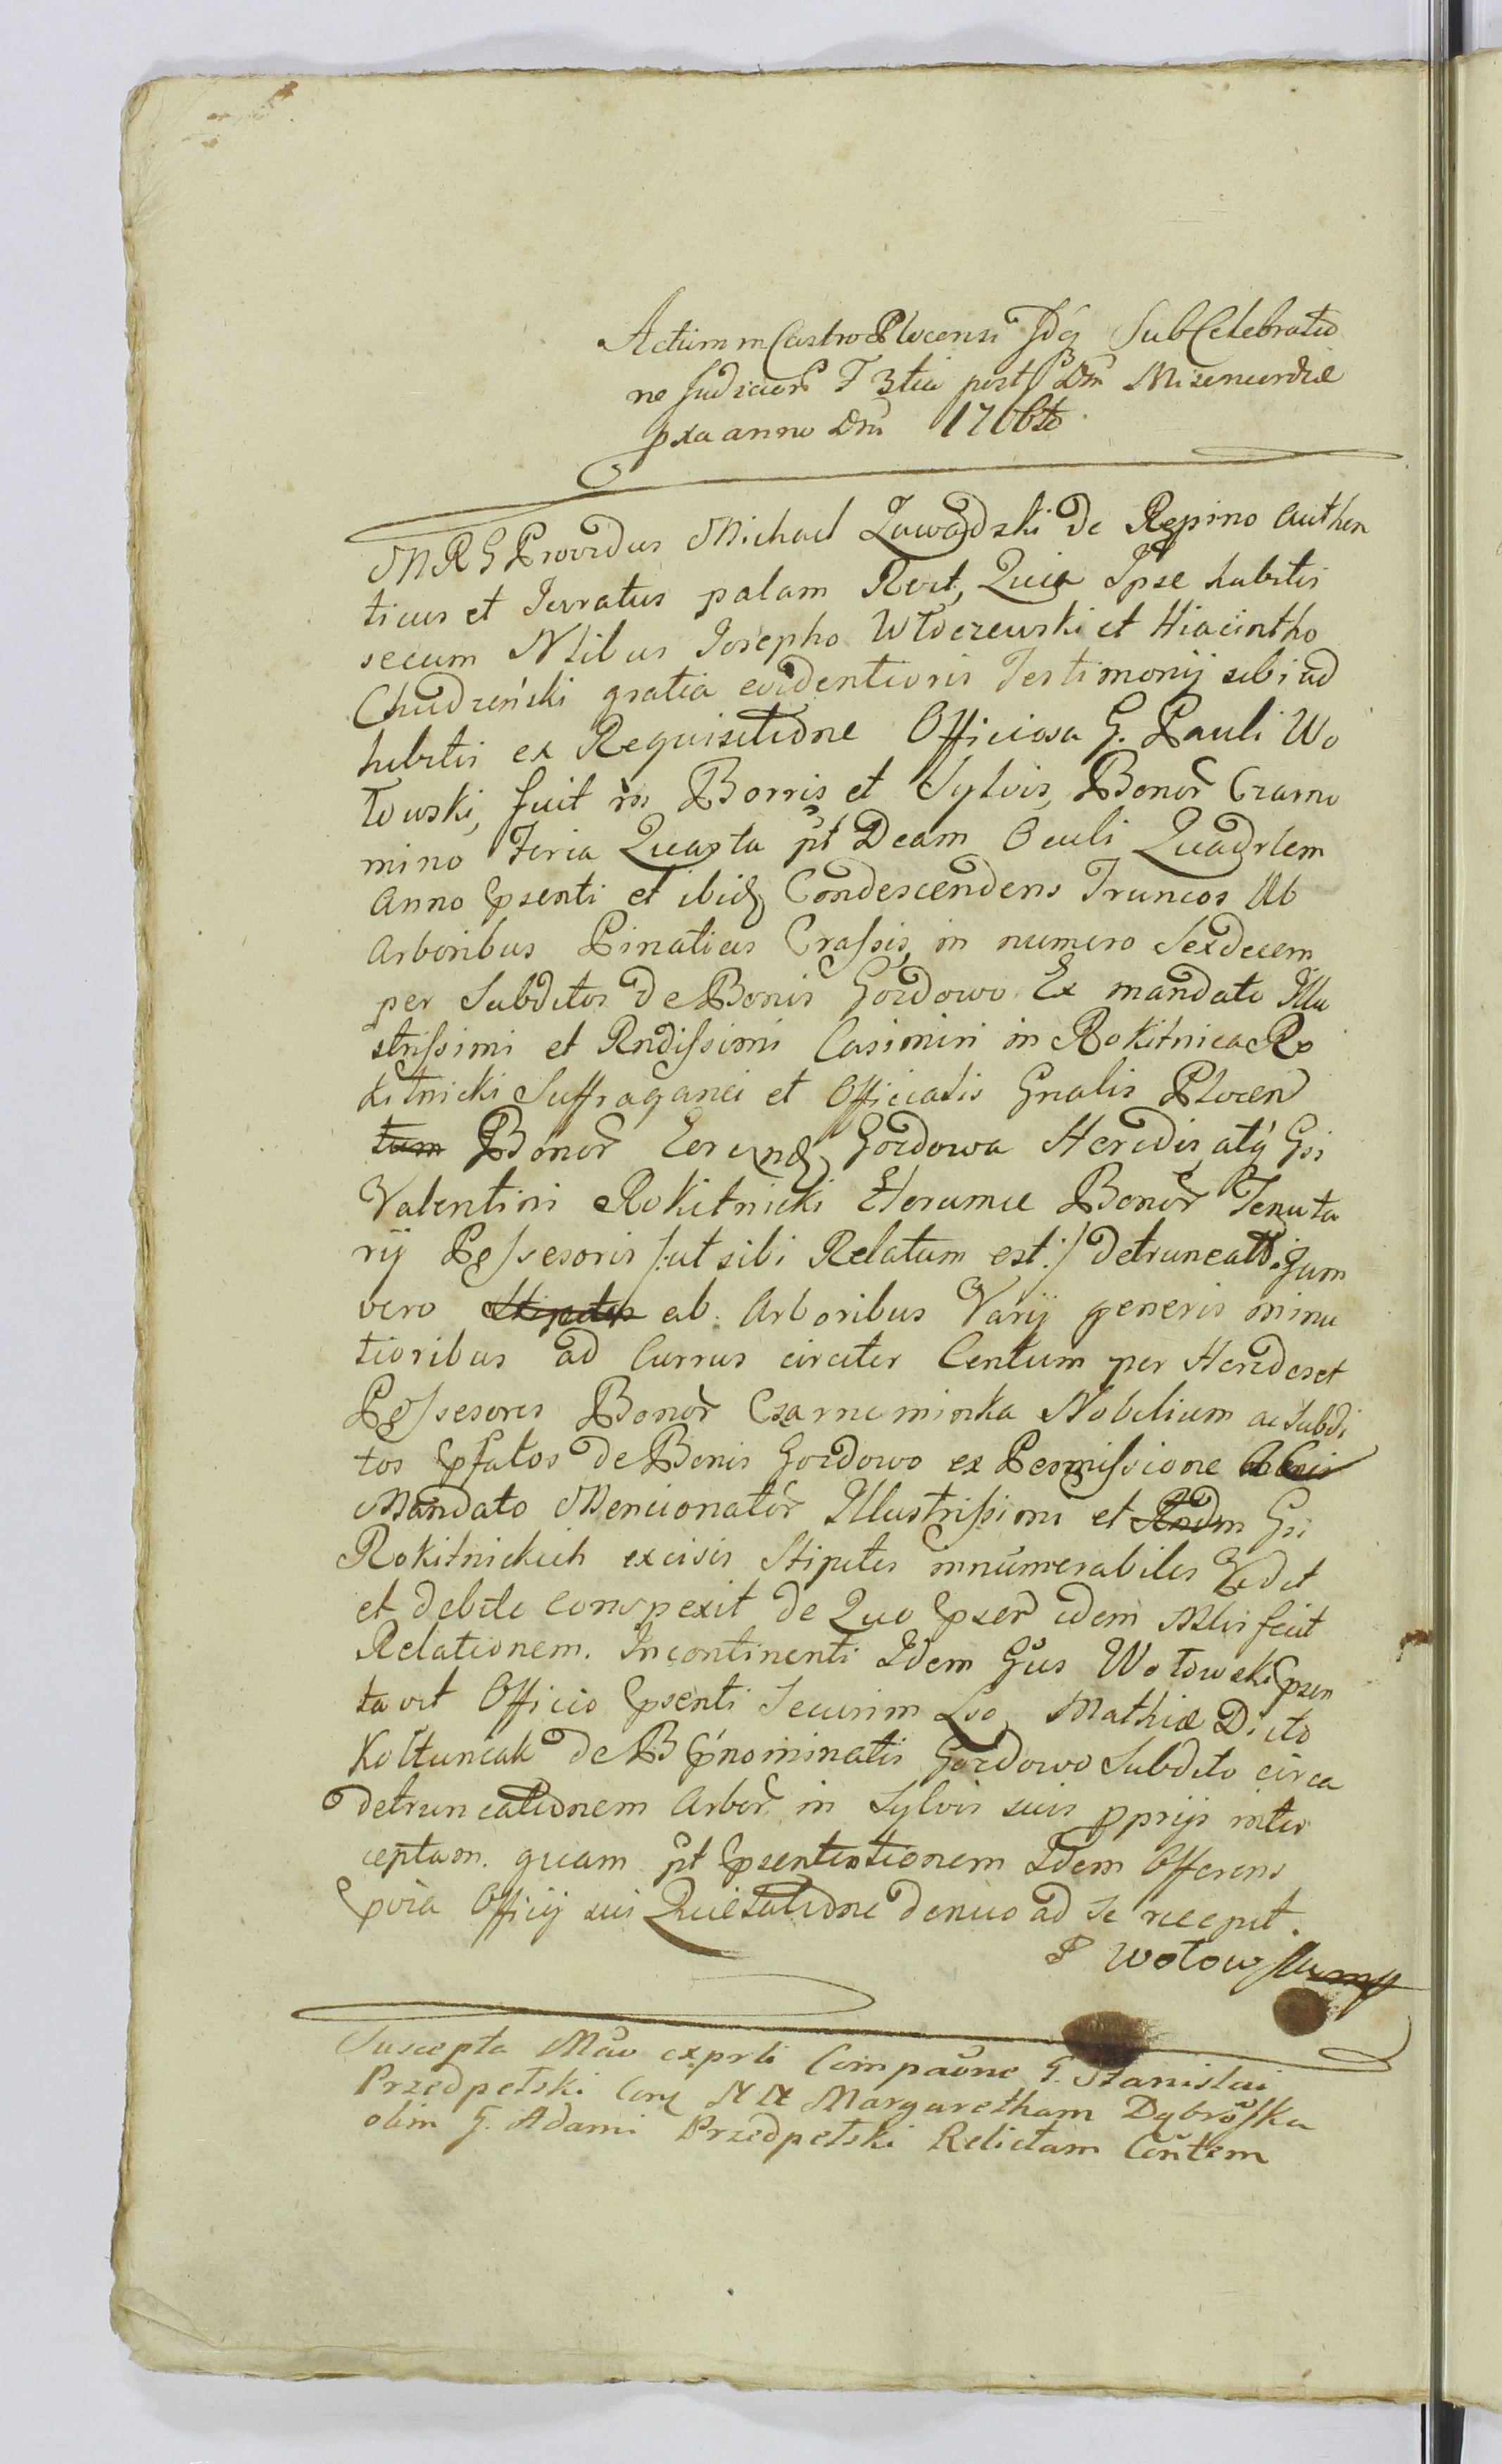 Actum in Castro Plocensi Idq Sub Celebratio
ne Judicior F 3tia post Dm Misericordiæ
pxa anno Dni 1766to
MRG Providus Michael Zawadzki de Rępino authen
ticus et Juratus palam Rvit, Quia Ipse habitis
secum Nlibus Josepho Włoczewski et Hiacintho
Chudziński gratia evidentioris Testimonij sibi ad
hibitis ex Requisitione Officiosa G. Pauli Wo
łowski, fuit in Borris et Sylvis, Bonor Czarno
mino Feria Quarta pt Dcam Oculi Quadrlem
Anno Psenti et ibid Condescendens Truncos Ab
Arboribus Pinaticis Crassis, in numero Sexdecem
per Subditos de Bonis Gozdowo Ex mandato Illu
strissimi et Rndissimi Casimiri in Rokitnica Ro
kitnicki Suffraganei et Officialis Gnalis Plocen
tum Bonor Eorund Gozdowa Heredis, atq Gsi
Valentini Rokitnicki Horumce Bonor Tenuta
rij Possesoris /:ut sibi Relatum est:/ detruncatos. Jum
vero Stipites ab Arboribus Varij generis minu
tioribus ad Currus circiter Centum per Heredes et
Possesores Bonor Czarnominka Nobilium ac Subdi
tos Pfatos de Bonis Gozdowo ex Permissione
Mandato Mencionator Illustrissimi et Rndm Gsi
Rokitnickich excisis Stipites innumerabiles Vidit
et debite conspexit de Quo Pser idem Mlis fecit
Relationem. Incontinenti Idem Gsus Wołowski Psen
tavit Officio Psenti Securim Lso Mathiæ Dicto
Kołtuniak de B Pnominatis Gozdowo Subdito circa
detruncationem Arbor in Sylvis suis pprijs inter
ceptam. quam pt Psentationem Idem Offerens
Pvia Officij sui Quietatione denuo ad se recepit.
P Wołowski mp
Suscepta Mao ex prte Compaone G. Stanislai
Przedpełski Con NN Margaretham Dąbroska
olim G. Adami Przedpełski Relictam Contem